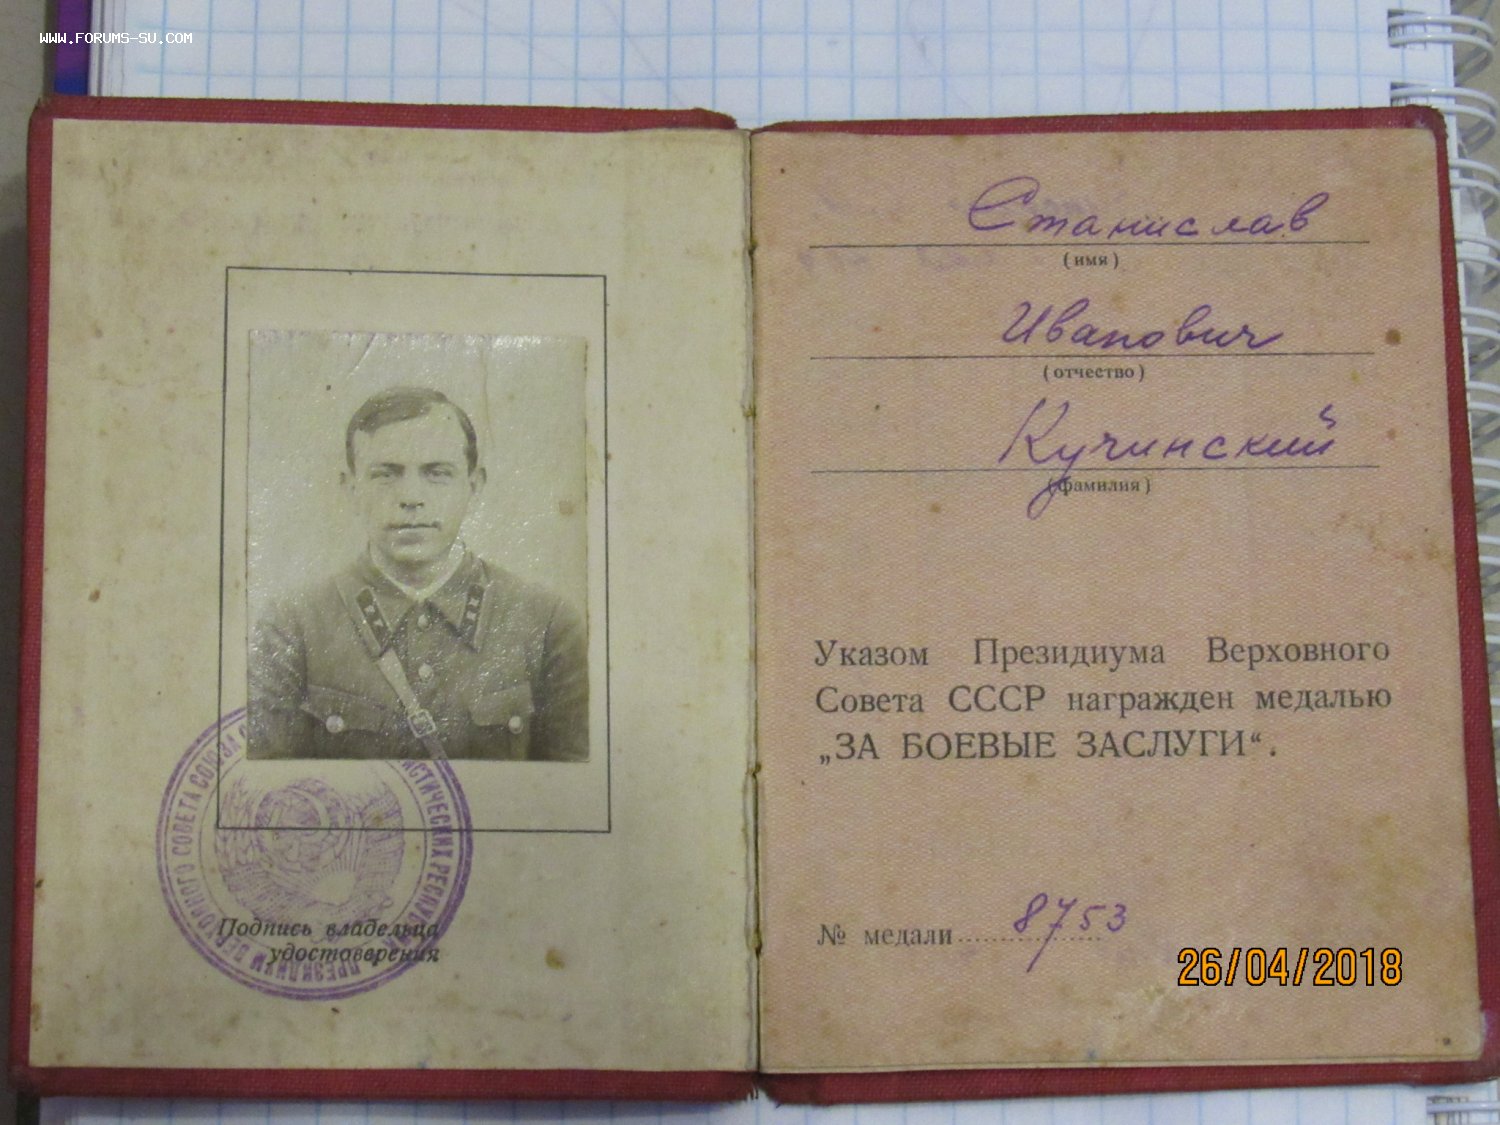 WWW.FORUMS-SU.COM
Станислав
(имя)
Иванович
(отчество)
Кучинский
(фамилия)
Указом Президиума Верховного
Совета СССР награжден медалью
„ЗА БОЕВЫЕ ЗАСЛУГИ“.
№ медали 8753
26/04/2018
ПРЕЗИДИУМ ВЕРХОВНОГО СОВЕТА СОЮЗА
Подпись владельца
удостоверения